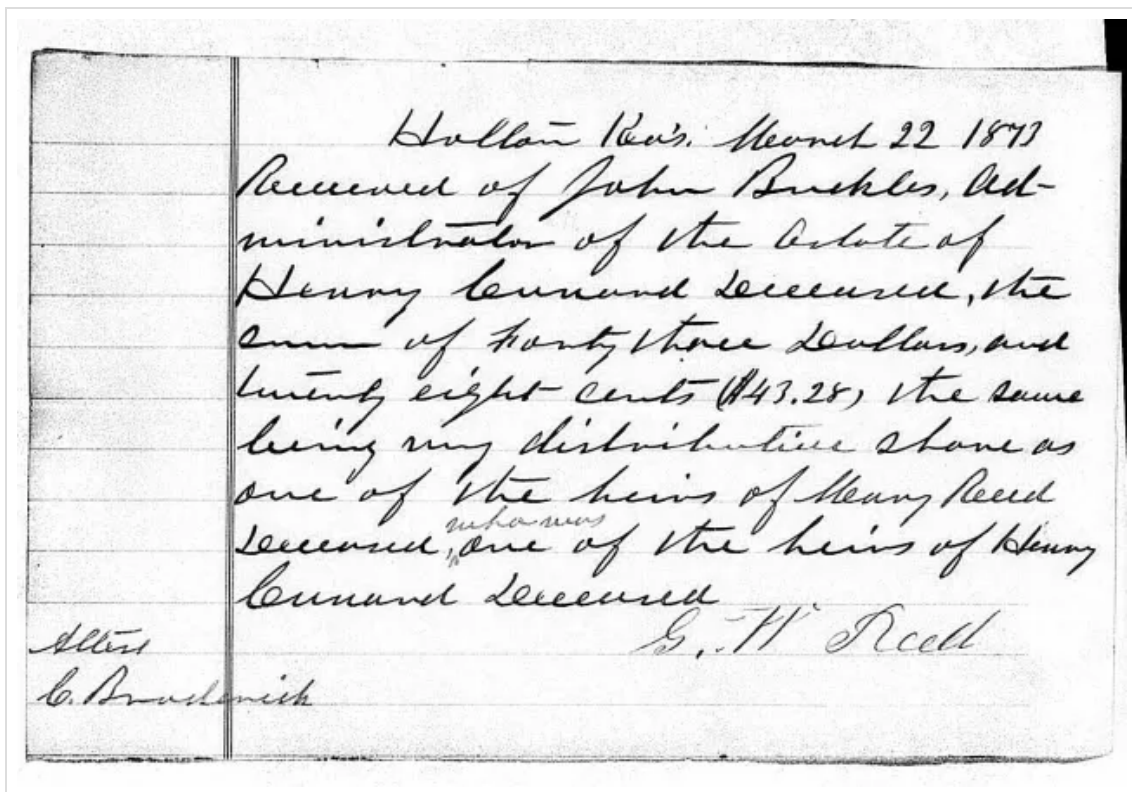 Holton Kas. March 22 1873
Received of John Buckles, Ad-
ministrator of the Estate of
Henry Cunard Deceased, the
sum of Forty three Dollars, and
twenty eight cents ($43.28) the same
being my distributive share as
one of the heirs of Mary Reed
Deceased, who was one of the heirs of Henry
Cunard Deceased
G. W Reed
Attest
C. Broderick